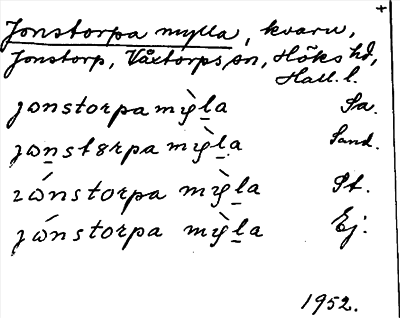 +
Jonstorpa mylla, kvarn,
Jonstorp, Våxtorps sn, Höks hd,
Hall. l.
jonstorpa mỳḻa Sa.
jωṉstɵrpa mỳḻa Sand.
ɿώnstorpa mỳḻa St.
jώnstorpa mỳḻa Ej.
1952.